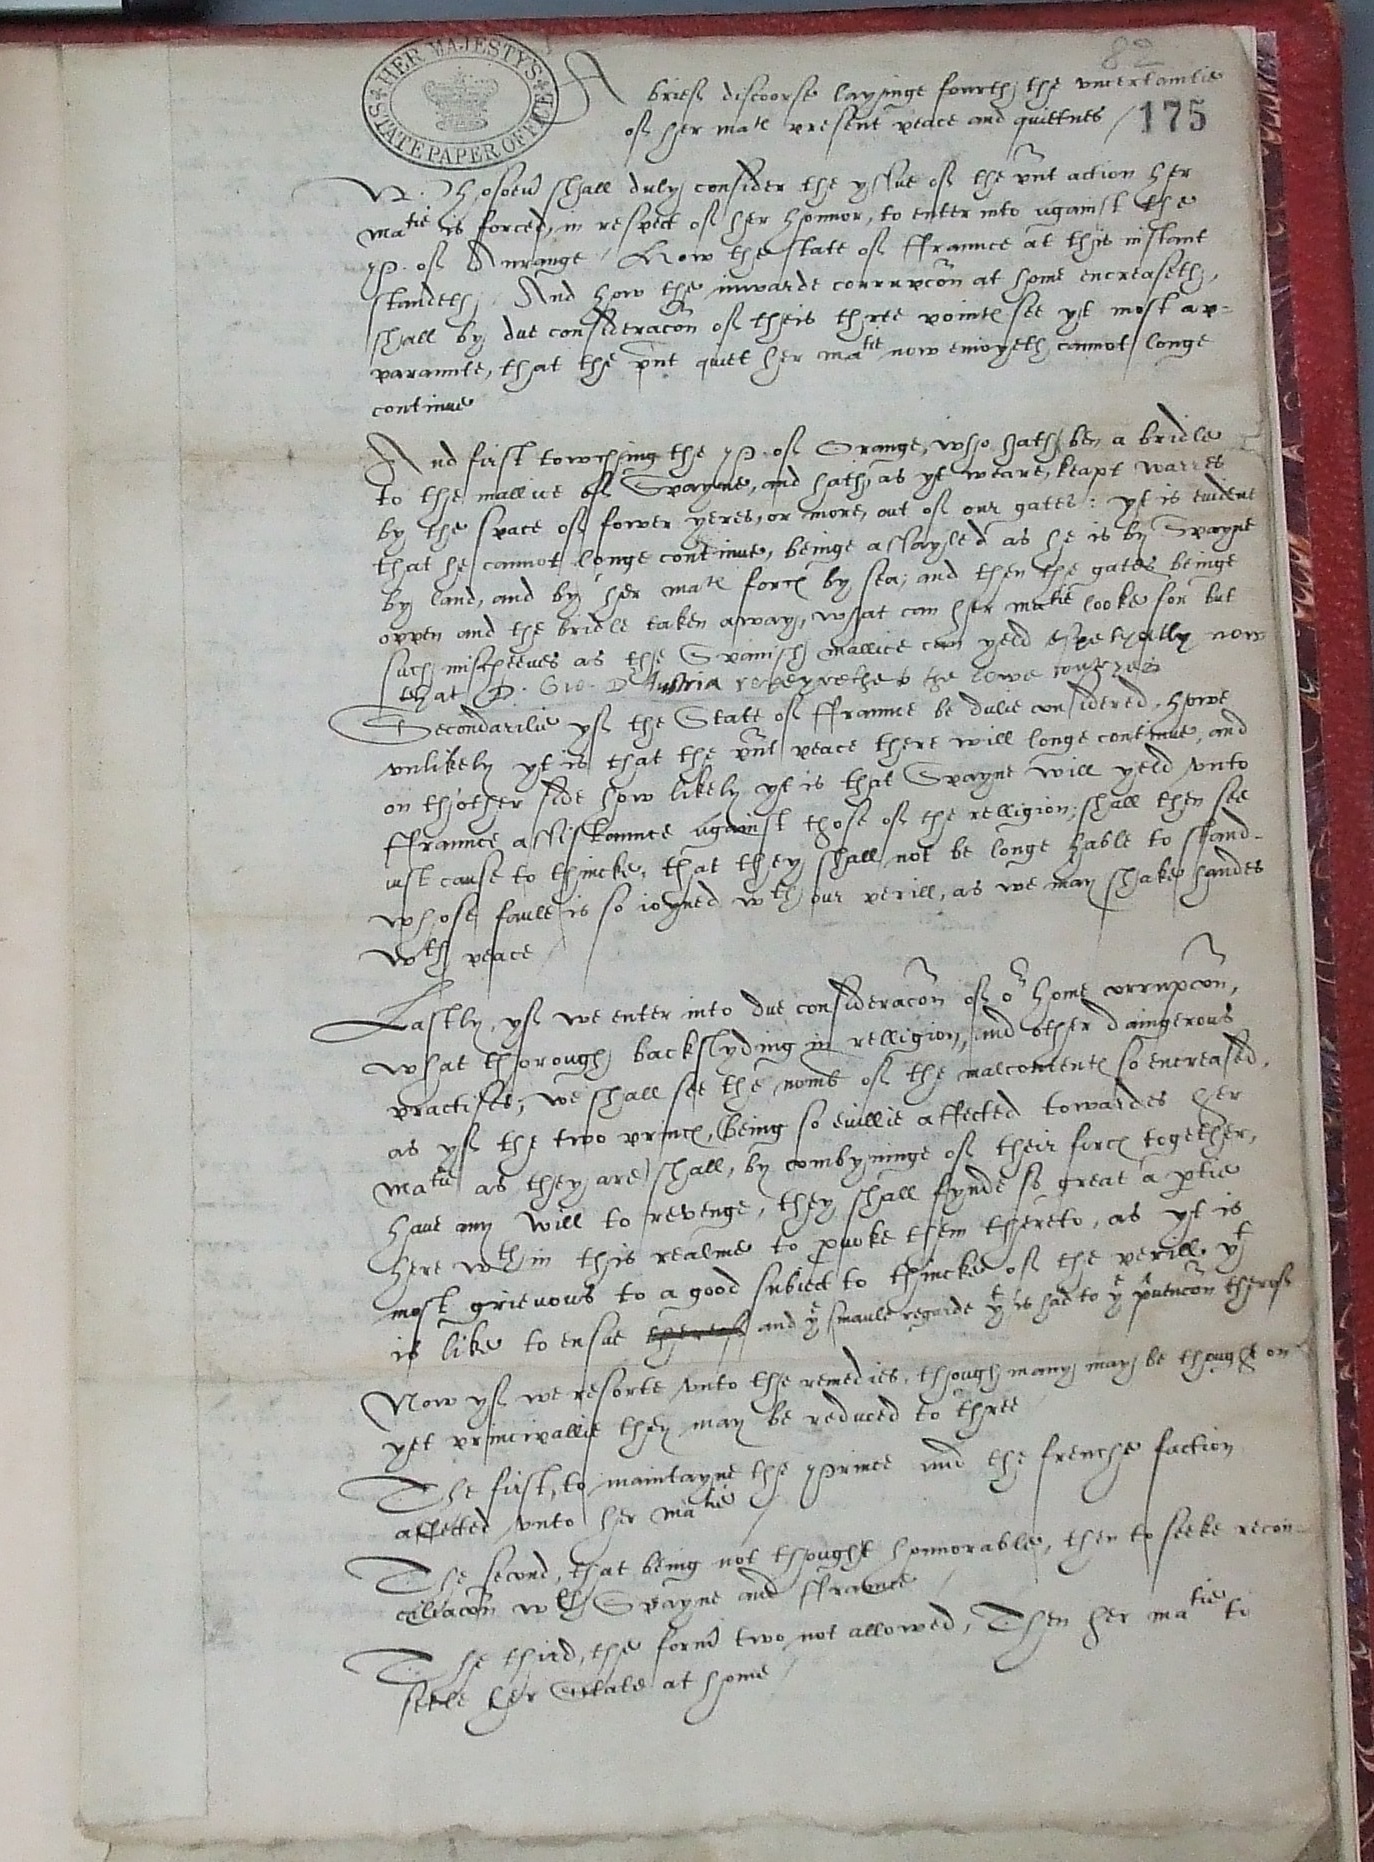 82
HER MAJESTY'S STATE PAPER OFFICE
A brief discoorse layinge fourth the uncertaintie
of her ma^te present peace and quietnes / 175
Whosoeu^r shall duly consider the yssue of the p̃nt action her
ma^tie is forced, in respect of her honnor, to enter into against the
P. of Aurange / How the state of ffraunce at this instant
standeth / And how the inwarde corrupcõn at home encreaseth,
shall by due consideracõn of theis three pointes see yt most ap-
paraunte, that the p̃nt quiet her ma^tie now enioyeth, cannot longe
continue
And first towching the P. of Orange, who hath ben a bridle
to the mallice of Spayne, and hath, as yt weare, keapt warres
by the space of fower yeres, or more, out of our gates: yt is evident
that he cannot longe continue, beinge assayled as he is by Spayne
by land, and by her ma^te forces by sea; and then the gates beinge
oppen and the bridle taken away, what can her ma^tie looke for but
such mischeeves as the Spanish mallice can yeld espetially now
that D. Gio. D'Austria the lowe contreis
Secondarilie yf the State of ffraunce be dulie considered, howe
unlikely yt is that the p̃nt peace there will longe continue, and
on th'other side how likely yt is that Spayne will yeld vnto
ffraunce assistaunce against those of the relligion; shall then see
iust cause to thincke, that they shall not be longe hable to stand-
whose faule is so ioyned w^th our perill, as we may shake handes
w^th peace
Lastly, yf we enter into due consideracõn of o^r home corrupcõn,
what thorough backslyding in relligion, and other daingerous
practises, we shall see the nomb^r of the malcontentes so encreased,
as yf the two princes, (being so euillie affected towardes her
ma^tie as they are) shall, by combyninge of their forces together,
haue any will to revenge, they shall fynde so great a ptie
here w^thin this realme to pvoke them thereto, as yt is
most grieuous to a good subiect to thincke of the perill y^t
is like to ensue thereof and y^e smaule regarde y^t is had to y^e p̃uencõn therof
Now yf we resorte vnto the remedies, though many may be thought on
yet principallie they may be reduced to three
The first, to maintayne the Prince and the frenche faction
affected vnto her ma^tie
The second, that being not thought honnorable, then to seeke recon-
ciliacõn w^th Spayne and ffraunce
The third, the form^r two not allowed, Then her ma^tie to
setle her Estate at home